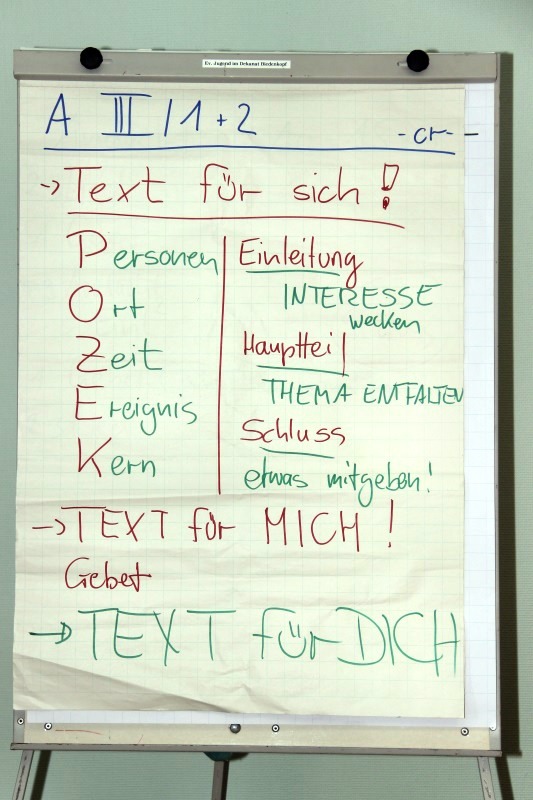 Ev. Jugend im Dekanat Biedenkopf
A III / 1 + 2
- cr -
→ Text für sich !
Personen
Ort
Zeit
Ereignis
Kern
Einleitung
INTERESSE
wecken
Hauptteil
THEMA ENTFALTEN
Schluss
etwas mitgeben!
→ TEXT für MICH !
Gebet
→ TEXT für DICH